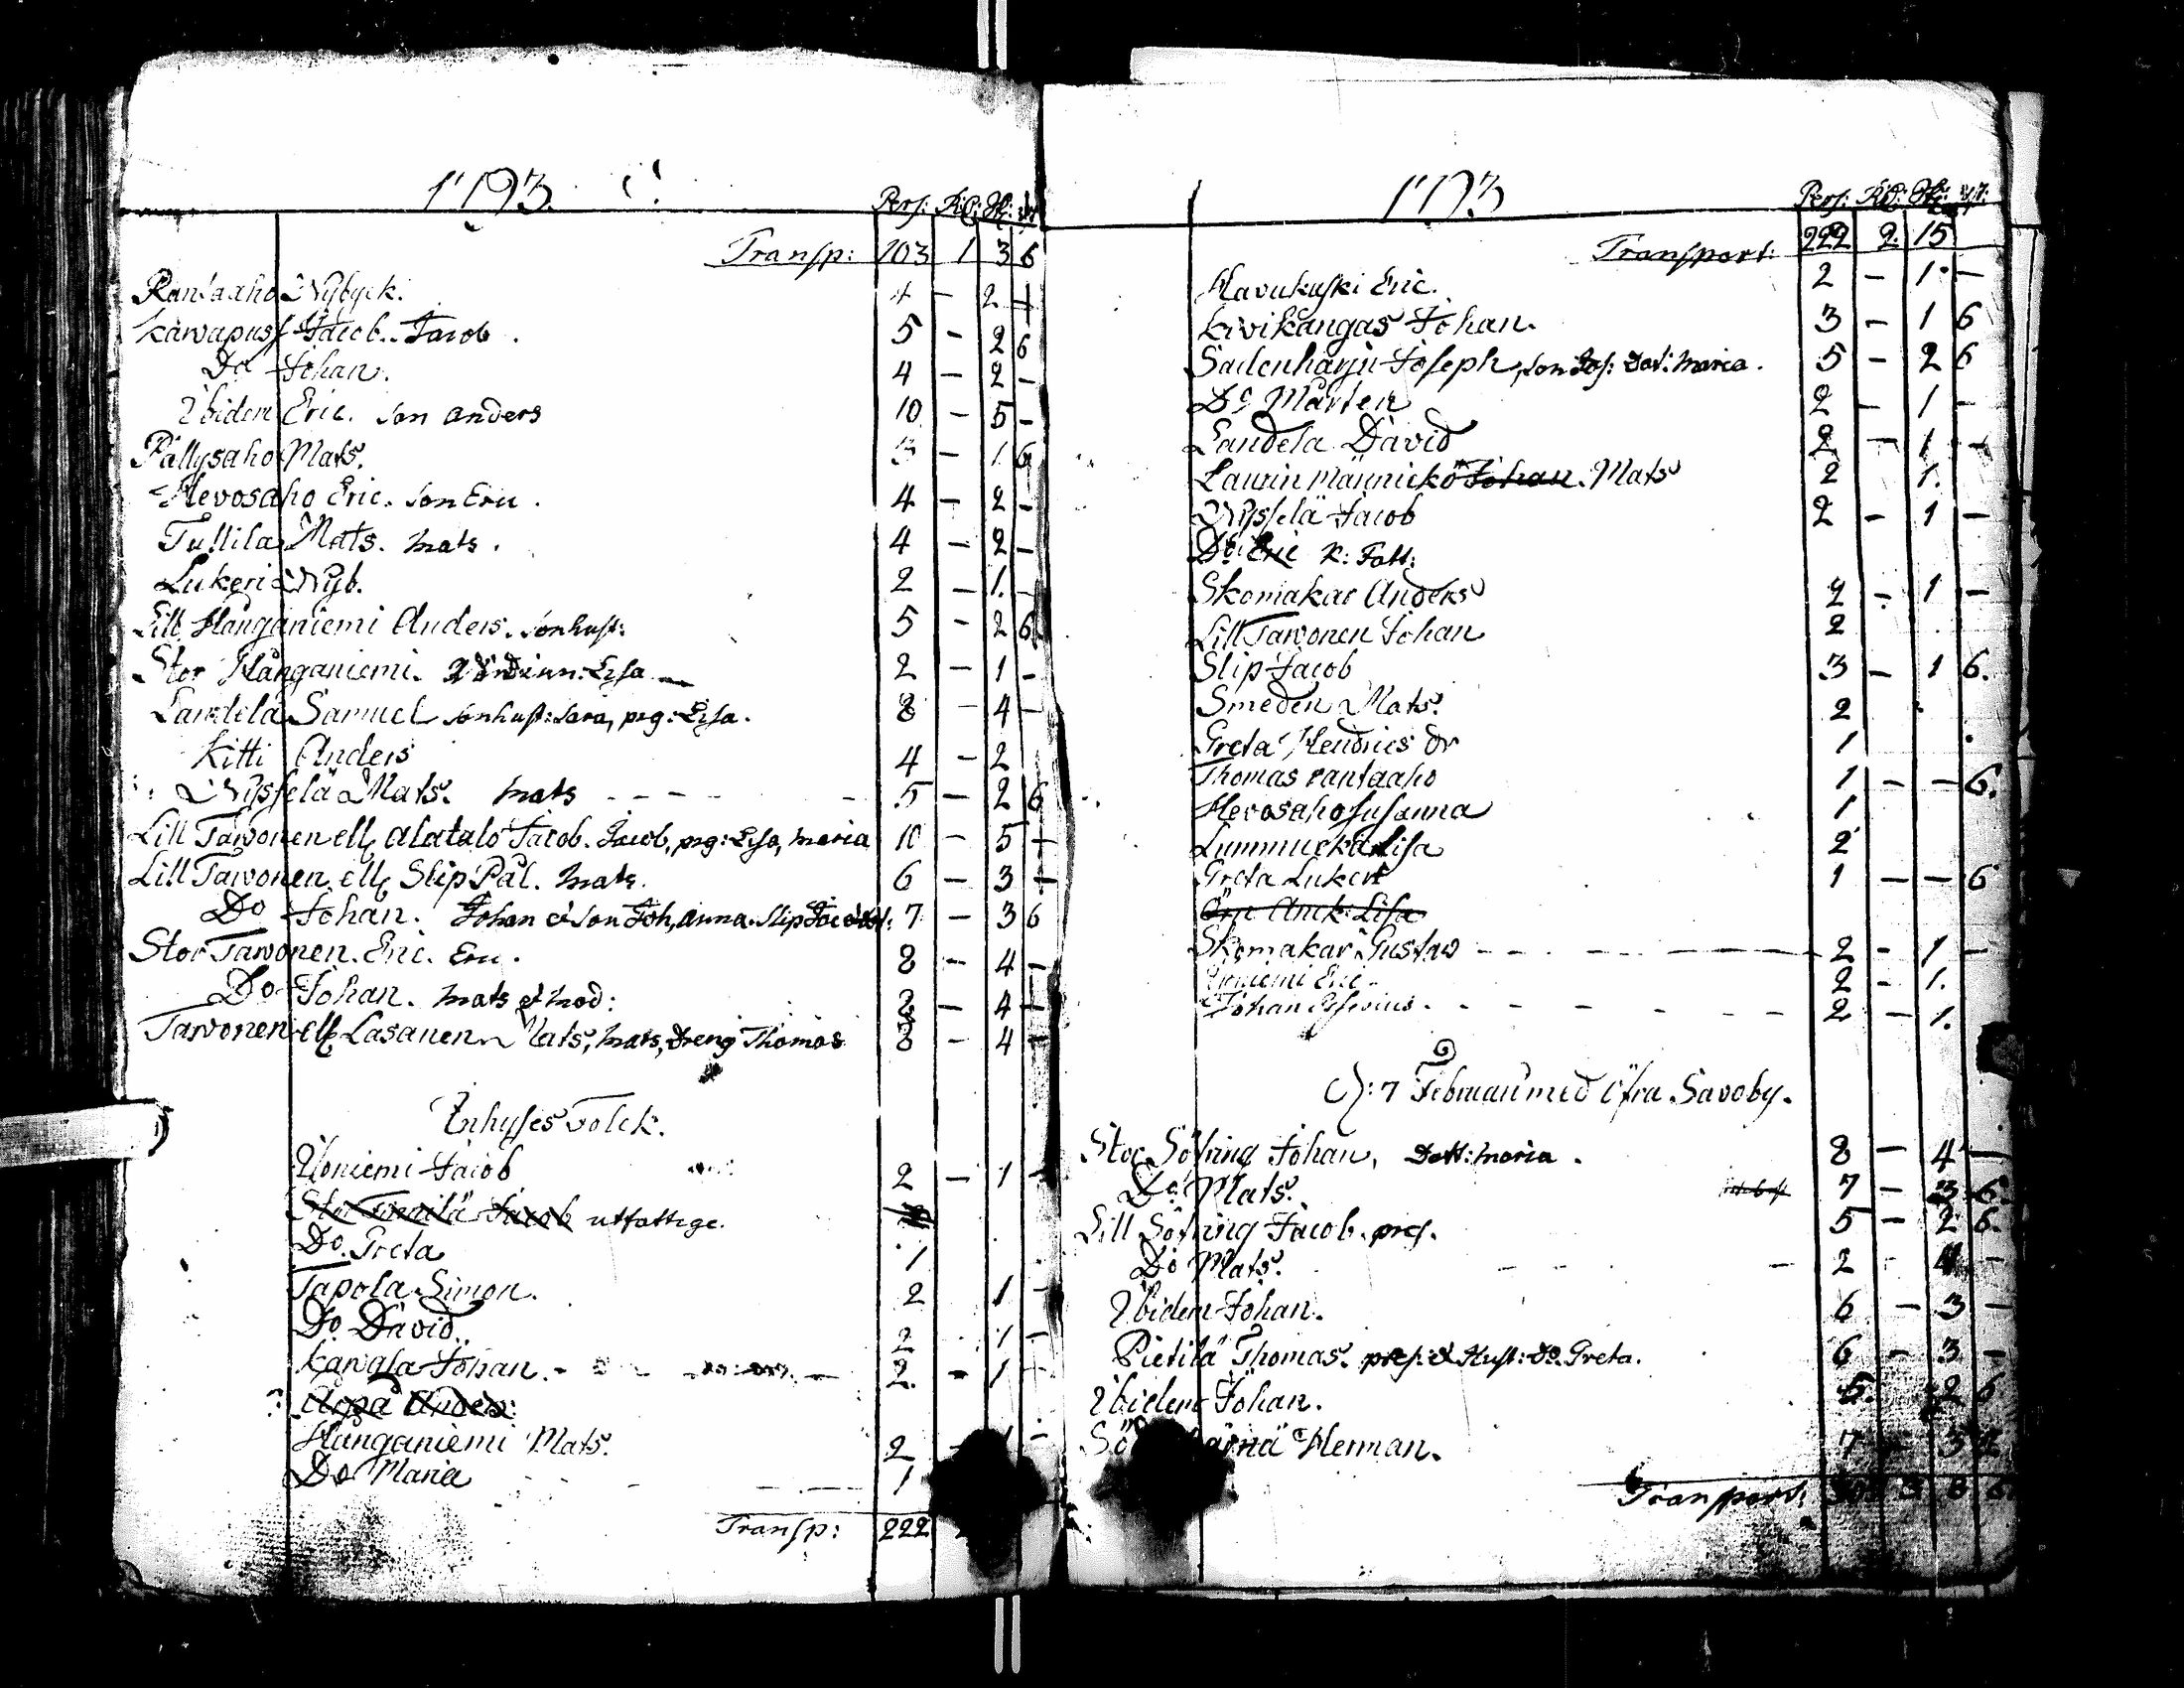 1793.
Pers: Rd: ß:
Transp: 103 1 3 6
Rantaaho Nybygk. 4 — 2 —
Karvapuss Jacob. Jacob. 5 — 2 6
Do Johan. 4 — 2 —
Ibidem Eric. Son Anders 10 — 5 —
Pällysaho Mats. 3 — 1 6
Hevosaho Eric. Son Eric. 4 — 2 —
Tullila Mats. Mats. 4 — 2 —
Lukeri Nyb. 2 — 1. —
Lill Hanganiemi Anders. Sonhust: 5 — 2 6
Stor Hanganiemi. Lisa — 2 — 1 —
Landela Samuel Sonhust: Sara, pig: Lisa. 8 — 4 —
Kitti Anders 4 — 2
Nysselä Mats. Mats 5 — 2 6
Lill Tarvonen ell Alatalo Jacob. Jacob, pig: Lisa, Maria 10 — 5 —
Lill Tarvonen ell Slip Pål. Mats. 6 — 3 —
Do Johan. Johan et Son Joh, Anna. Slip 7 — 3 6
Stor Tarvonen. Eric. Eric. 8 — 4 —
Do Johan. Mats et mod: 8 — 4 —
Tarvonen ell Lasanen Mats, Mats, Dreng Thomas 8 — 4 —
Inhyses Folck.
Uoniemi Jacob 2 — 1 —
Jacob utfattige.
Do. Greta 1
Tapola Simon. 2 1 —
Do. David. 2 1 —
Karvala Johan. 2. — 1 —
Arpa Anders
Hanganiemi Mats. 2 —
Do Maria 1
Transp: 222
1793
Pers: Rd: ß:
Transport: 222 2. 15
Havukoski Eric. 2 — 1. —
Kivikangas Johan. 3 — 1 6
Sadenharju Joseph, Son Jos: Dot: Maria. 5 — 2 6
Do Mårten 2 — 1 —
Landela David 2 — 1 —
Laurin Männickö Johan. Mats 2 1.
Nysselä Jacob 2 — 1 —
Do. Eric K: Fatt:
Skomakar Anders 2 — 1 —
Lill Tarvonen Johan 2
Slip Jacob 3 — 1 6.
Smeden Mats. 2
Greta Hendrics dr 1
Thomas rantaaho 1 — — 6.
Hevosaho Susanna 1
Lummucka Lisa 2
Greta Lukeri 1 — — 6
Lisa
Skomakar Gustaw 2 — 1 —
Eric 2 — 1.
Johan 2 — 1.
D: 7 Februari med Öfra Savoby.
Stor Söfring Johan, Dott: Maria. 8 — 4 —
Do. Mats. 7 — 3 6.
Lill Söfring Jacob. pig. 5 — 2 6.
Do Mats. 2 —
Ibidem Johan. 6 — 3 —
Pietilä Thomas. pig: et Hust: do. Greta. 6 — 3 —
Ibidem Johan. 5. 2 6
Herman. 7 3
Transport: